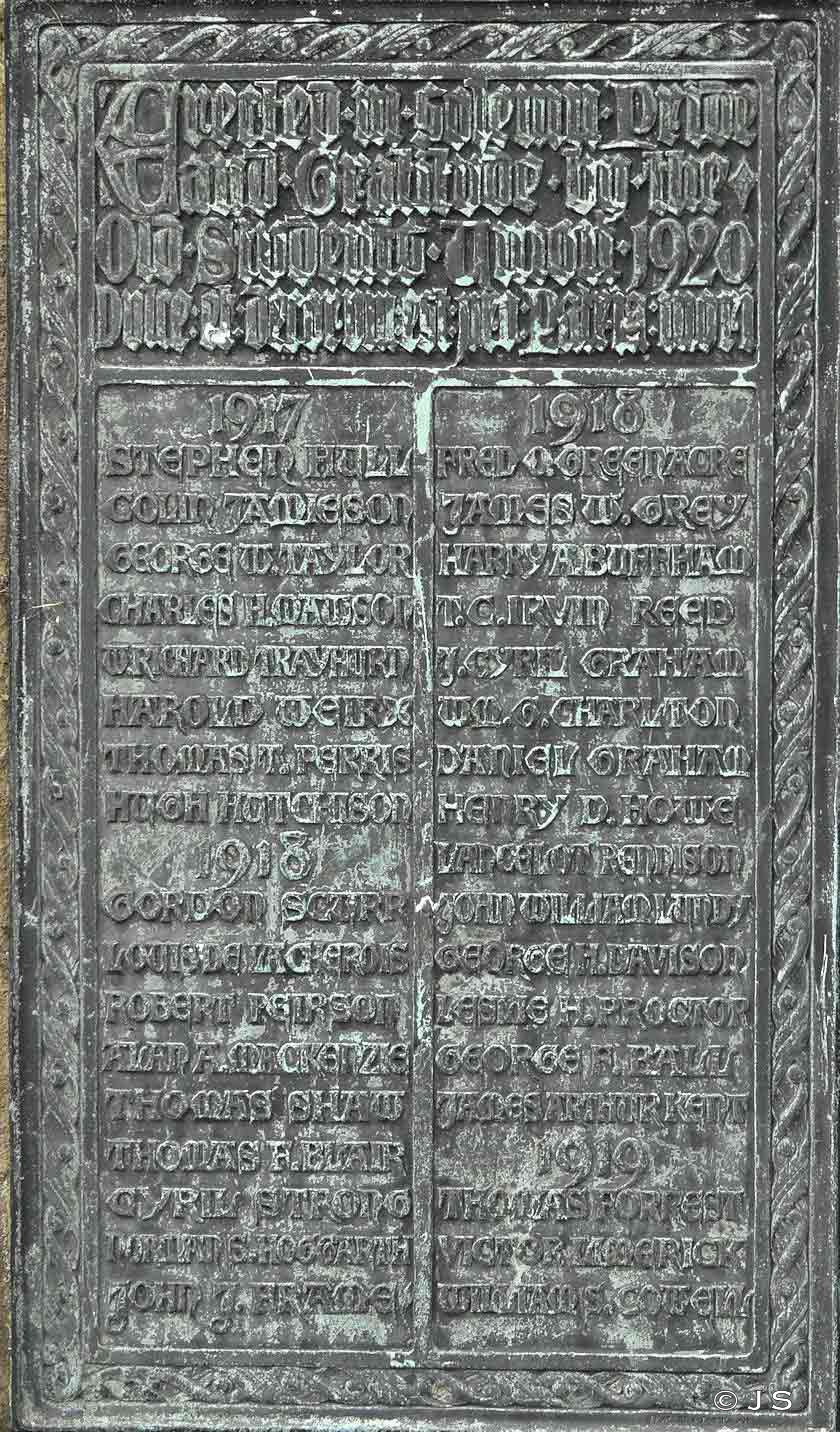 Erected · in · Solemn · Pride
and · Gratitude · by · the ·
Old · Students · Union · 1920
Dulce · et · decorum · est · pro · Patria · mori
1917
STEPHEN HULL
COLIN JAMIESON
GEORGE W. TAYLOR
CHARLES H. WATSON
W. RICHARD
HAROLD WEIR
THOMAS T. FERRIS
HUGH HUTCHISON
1918
GORDON SCARR
LOUIS DE LACHEROIS
ROBERT PEIRSON
ALAN A. MACKENZIE
THOMAS SHAW
THOMAS F. BLAIR
CYRIL STRONG
NORMAN E. HOGGARTH
JOHN J. FRAME
1918
FRED J. GREENACRE
JAMES W. GREY
HARRY A. BUFFHAM
T. C. IRVIN REED
J. CYRIL GRAHAM
WM. G. CHARLTON
DANIEL GRAHAM
HENRY D. HOWE
LANCELOT RENNISON
JOHN WILLIAM LUNDY
GEORGE H. DAVISON
LESLIE H. PROCTOR
GEORGE A. BALL
JAMES ARTHUR KENT
1919
THOMAS FORREST
VICTOR LIMERICK
WILLIAM S. COWEN
© J S